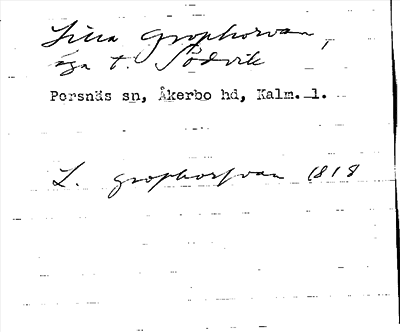 Lilla Grophorvan,
äga t. Södvik
Persnäs sn, Åkerbo hd, Kalm. l.
L. grophorfvan 1818